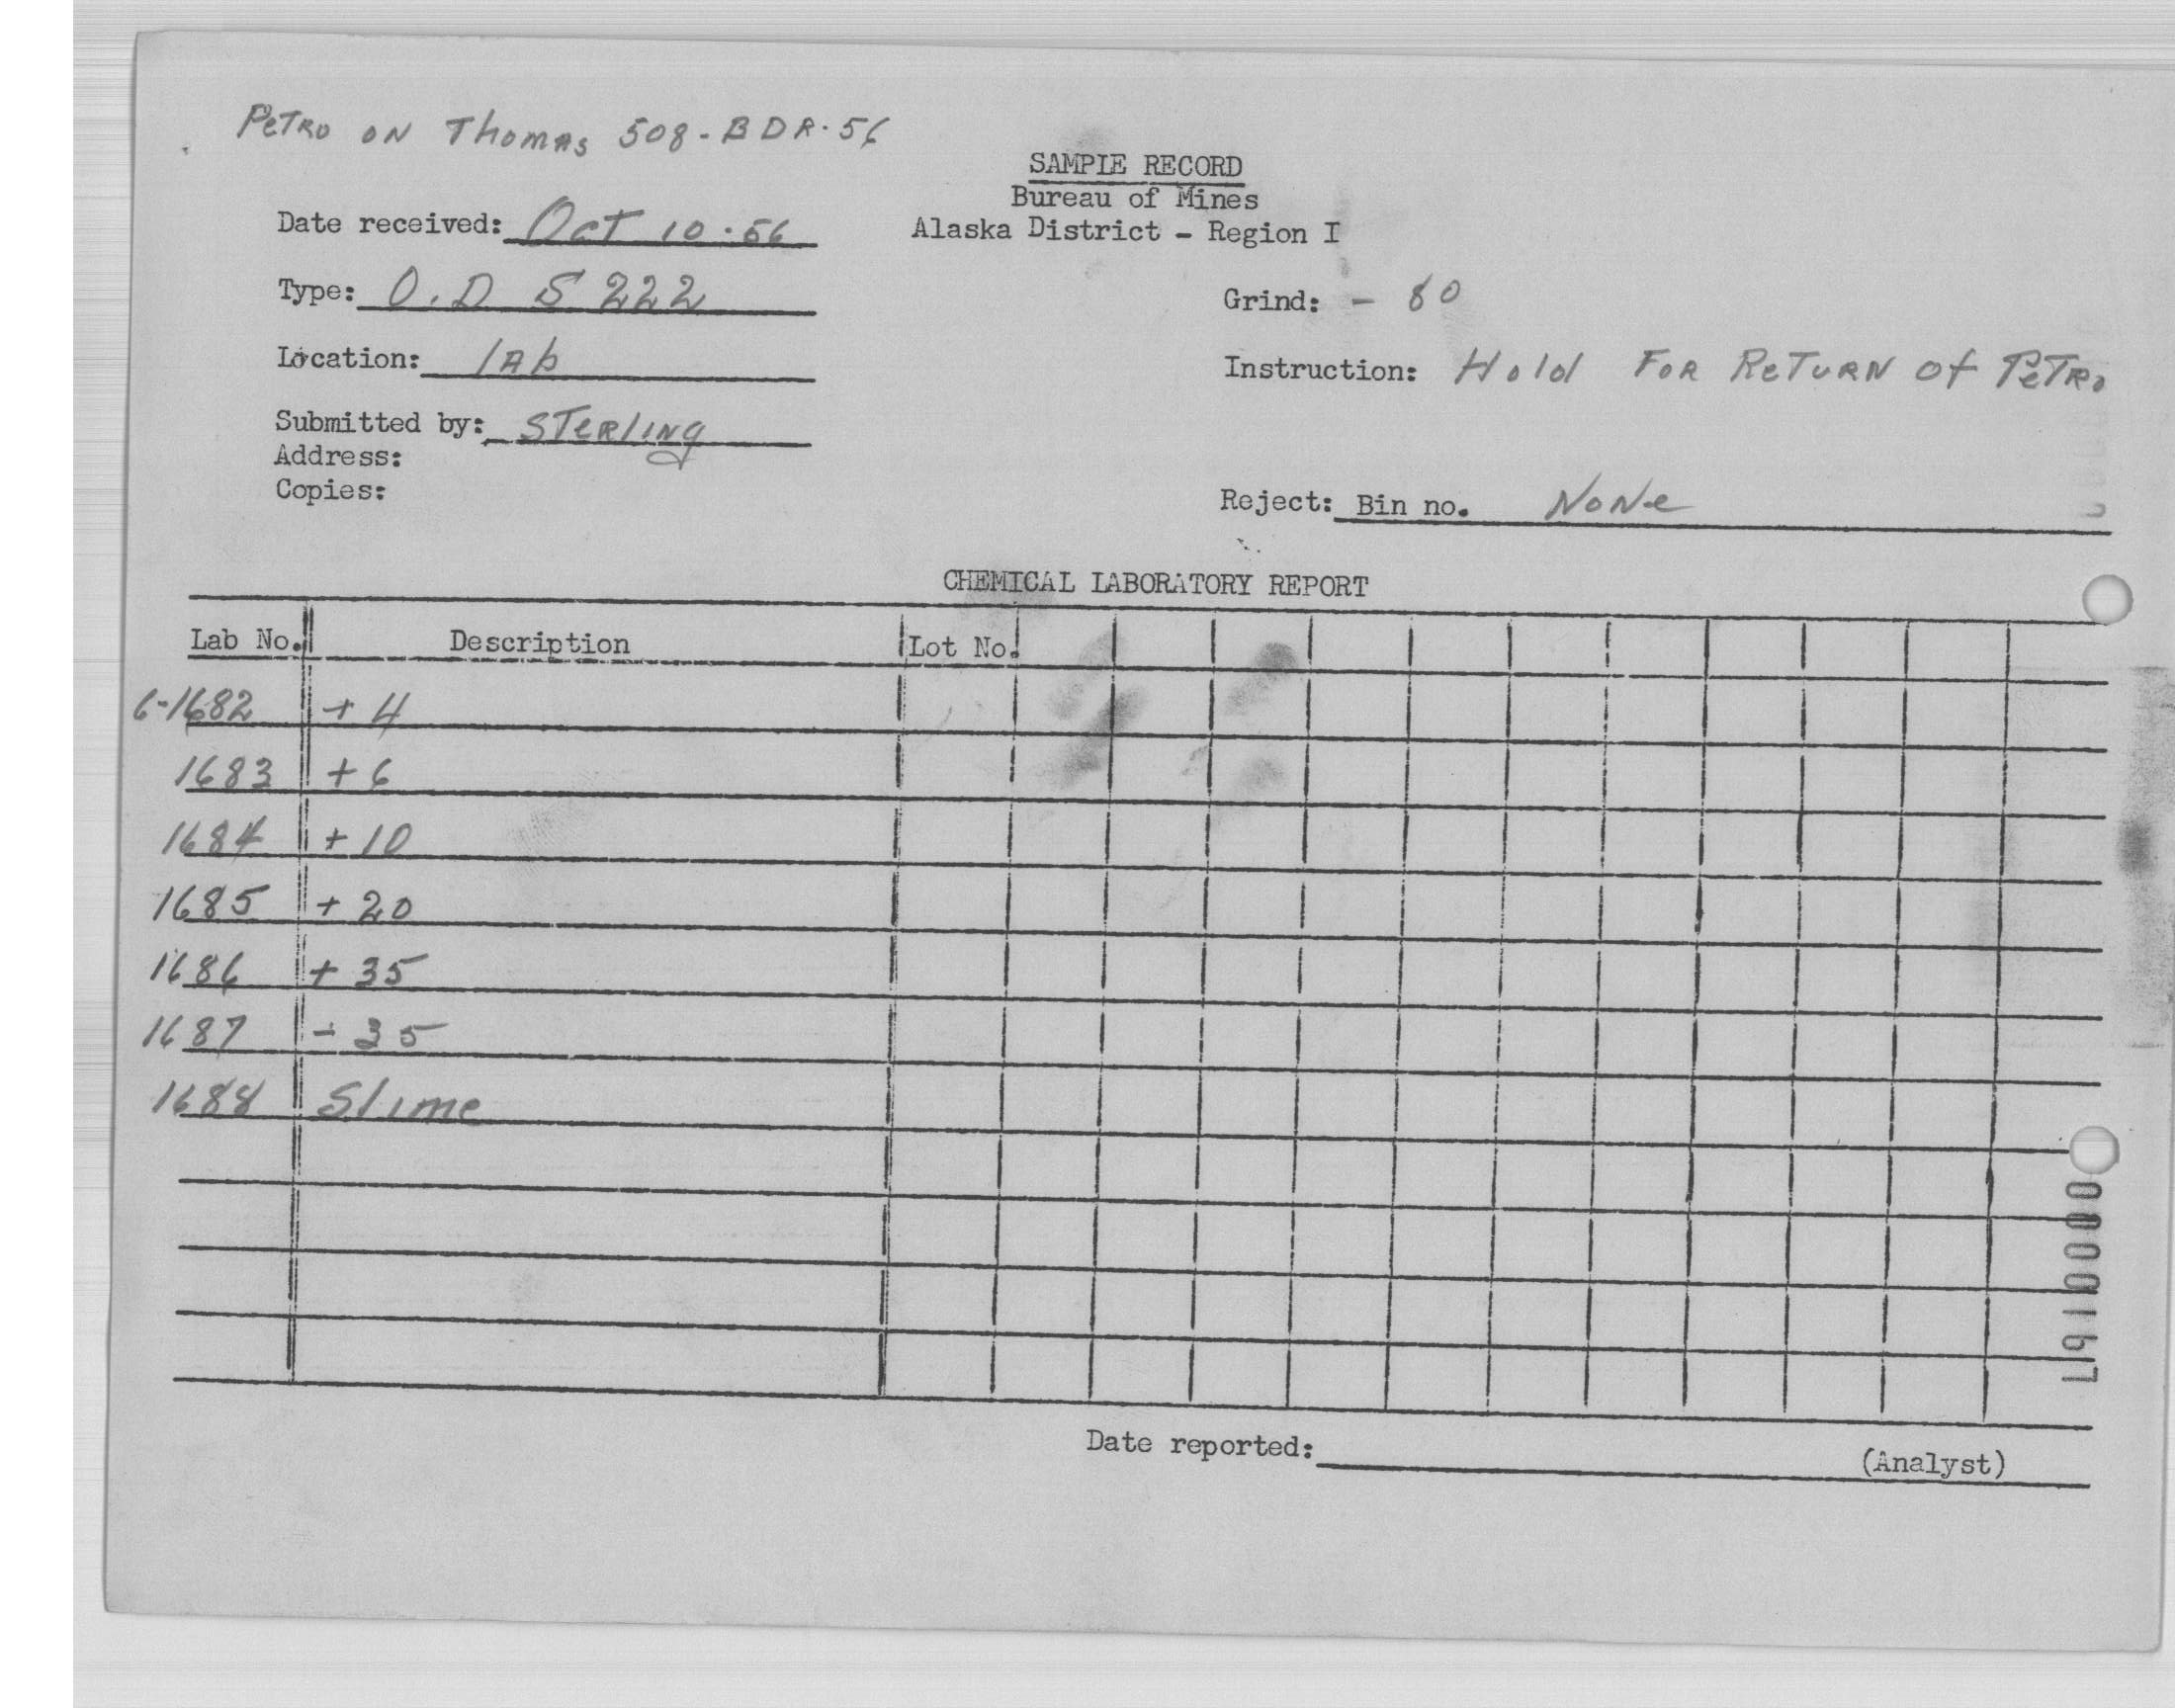 PeTRO ON Thomas 508-BDR-56
SAMPLE RECORD
Bureau of Mines
Alaska District - Region I
Date received: OCT 10-56
Type: O.D S 222
Grind: - 80
Location: lAb
Instruction: Hold FOR ReTURN of PeTRO
Submitted by: STeRlINg
Address:
Copies:
Reject: Bin no. NoNe
CHEMICAL LABORATORY REPORT
Lab No. Description Lot No.
6-1682 + 4
1683 + 6
1684 + 10
1685 + 20
1686 + 35
1687 - 35
1688 Slime
Date reported: (Analyst)
00000167